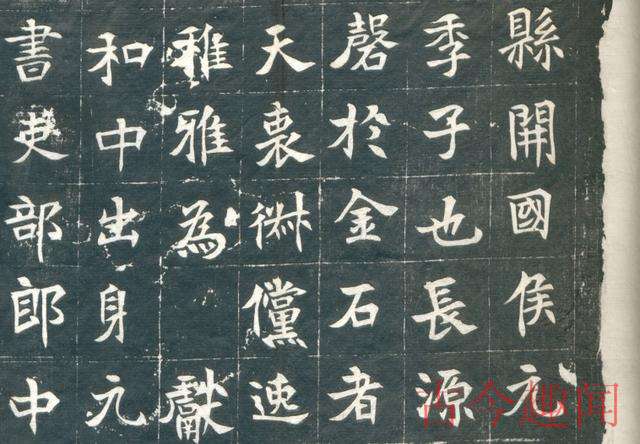 縣開國侯
季子也長源
磬於金石者
天衷儻速
稚雅為獻
和中出身元
書吏部郎中
古今趣闻